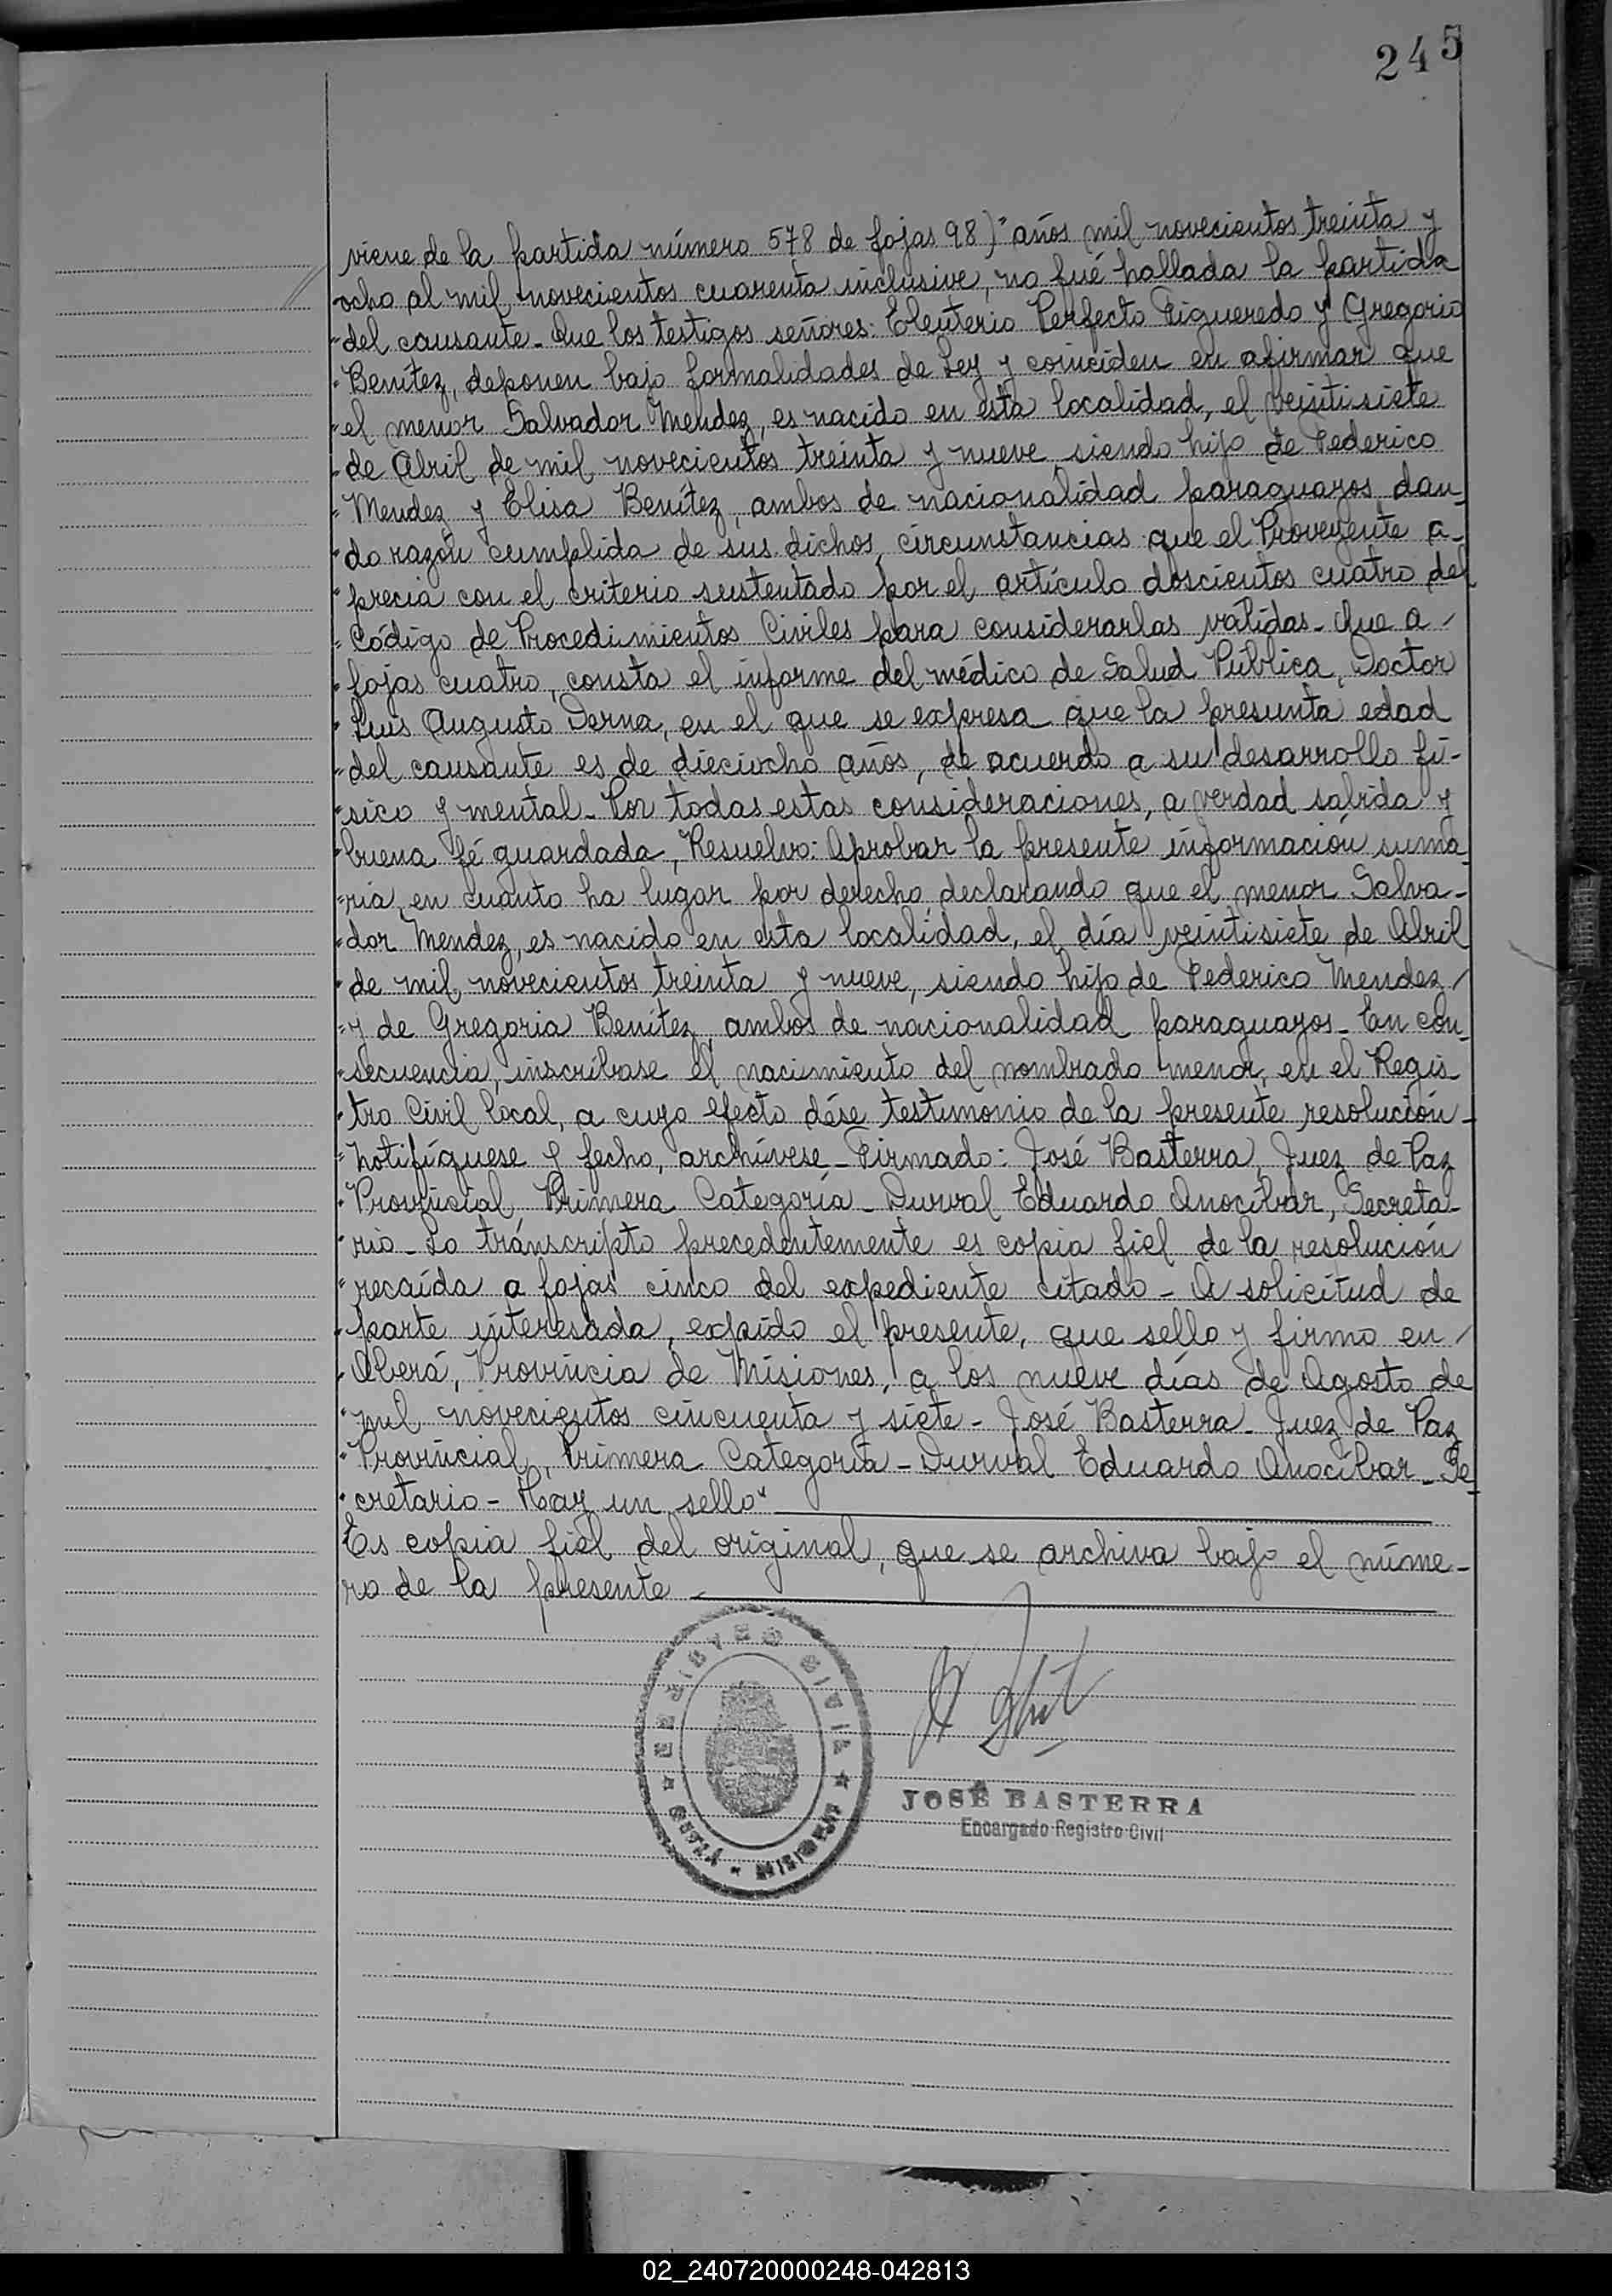 245
viene de la partida número 578 de fojas 98)" años mil novecientos treinta y
ocho al mil novecientos cuarenta inclusive, no fué hallada la partida
"del causante. Que los testigos señores: Eleuterio Perfecto Figueredo y Gregorio
"Benítez, deponen bajo formalidades de Ley y coinciden en afirmar que
"el menor Salvador Mendez, es nacido en esta localidad, el veintisiete
"de Abril de mil novecientos treinta y nueve, siendo hijo de Federico
"Mendez y Elisa Benítez, ambos de nacionalidad paraguayos, dan-
"do razón cumplida de sus dichos, circunstancias que el Proveyente a-
"precia con el criterio sustentado por el artículo doscientos cuatro del
"Código de Procedimientos Civiles para considerarlas válidas. Que a /
"fojas cuatro, consta el informe del médico de Salud Pública, Doctor
"Luis Augusto Derna, en el que se expresa que la presunta edad
"del causante es de dieciocho años, de acuerdo a su desarrollo fí-
"sico y mental. Por todas estas consideraciones, a verdad sabida y
"buena fé guardada, Resuelvo: Aprobar la presente información suma-
"ria, en cuanto ha lugar por derecho, declarando que el menor Salva-
"dor Mendez, es nacido en esta localidad, el día veintisiete de Abril
"de mil novecientos treinta y nueve, siendo hijo de Federico Mendez /
"y de Gregoria Benítez, ambos de nacionalidad paraguayos. En con-
"secuencia, inscríbase el nacimiento del nombrado menor, en el Regis-
"tro Civil local, a cuyo efecto dése testimonio de la presente resolución-
"Notifíquese y fecho, archívese. Firmado: José Basterra, Juez de Paz
"Provincial Primera Categoría - Durval Eduardo Anocíbar, Secreta-
"rio. Lo tránscripto precedentemente es copia fiel de la resolución
"recaída a fojas cinco del expediente citado - A solicitud de
"parte interesada, expido el presente, que sello y firmo en /
"Oberá, Provincia de Misiones, a los nueve días de Agosto de
"mil novecientos cincuenta y siete - José Basterra - Juez de Paz
"Provincial, Primera Categoría - Durval Eduardo Anocíbar - Se-
"cretario - Hay un sello"
Es copia fiel del original, que se archiva bajo el núme-
ro de la presente
REGISTRO CIVIL
OBERÁ - MISIONES
JOSÉ BASTERRA
Encargado Registro Civil
02_240720000248-042813